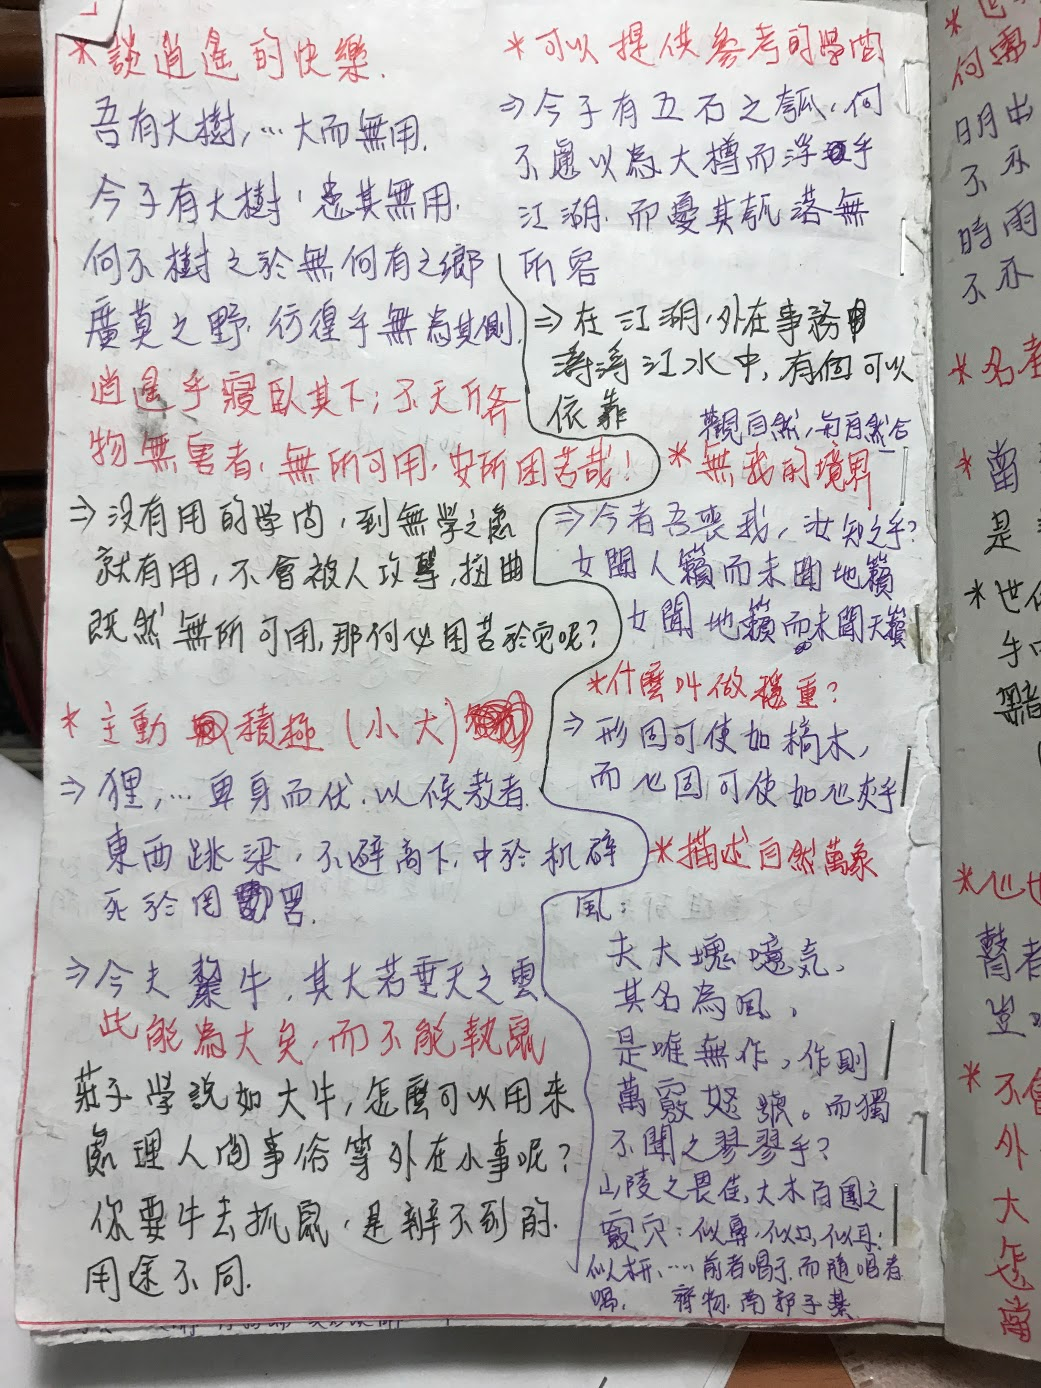 *談逍遙的快樂.
吾有大樹,…大而無用.
今子有大樹,患其無用.
何不樹之於無何有之鄉
廣莫之野.彷徨乎無為其側.
逍遙乎寢臥其下;不夭斤斧
物無害者,無所可用,安所困苦哉!
⇒沒有用的學問,到無學之處
就有用,不會被人攻擊,扭曲
既然無所可用,那何必困苦於它呢?
*主動 積極(小大)
⇒狸,…卑身而伏.以候敖者.
東西跳梁,不避高下.中於机辟
死於罔罟.
⇒今夫斄牛,其大若垂天之雲
此能為大矣,而不能執鼠
莊子學說如大牛,怎麼可以用來
處理人間事俗等外在小事呢?
你要牛去抓鼠,是辦不到的.
用途不同.
*可以提供參考的學問
⇒今子有五石之瓠,何
不慮以為大樽而浮乎
江湖.而憂其瓠落無
所容
⇒在江湖,外在事務中
濤濤江水中,有個可以
依靠
觀自然,與自然合一
*無我的境界
⇒今者吾喪我,汝知之乎?
女聞人籟而未聞地籟
女聞地籟而未聞天籟
*什麼叫做穩重?
⇒形固可使如槁木,
而心固可使如心灰乎
*描述自然萬象
風:
夫大塊噫気,
其名為風,
是唯無作,作則
萬竅怒號。而獨
不聞之翏翏乎?
山陵之畏隹,大木百圍之
竅穴:似鼻,似口,似耳;
似枅、…前者唱于而隨唱者
喁. 齊物.南郭子綦